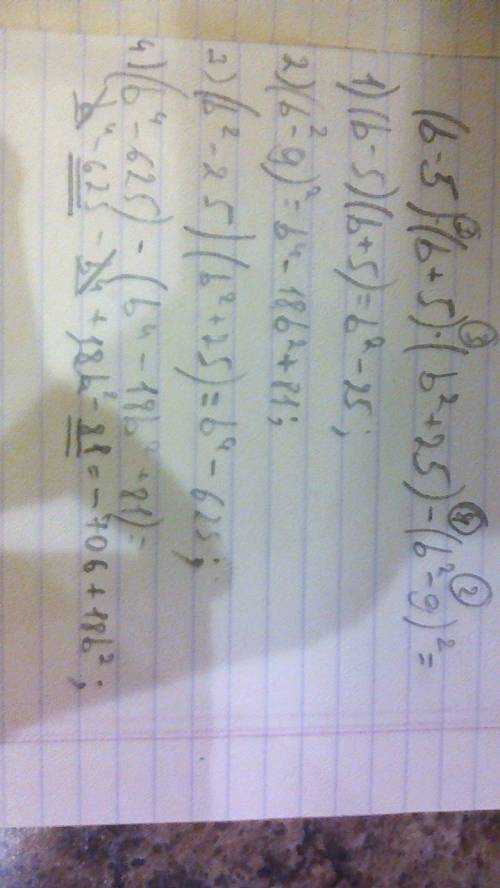 (b-5)·(b+5)·(b²+25)-(b²-9)²=
1)(b-5)(b+5)=b²-25;
2)(b²-9)²=b⁴-18b²+81;
3)(b²-25)(b²+25)=b⁴-625;
4)(b⁴-625)-(b⁴-18b²+81)=
b⁴-625-b⁴+18b²-81=-706+18b²;